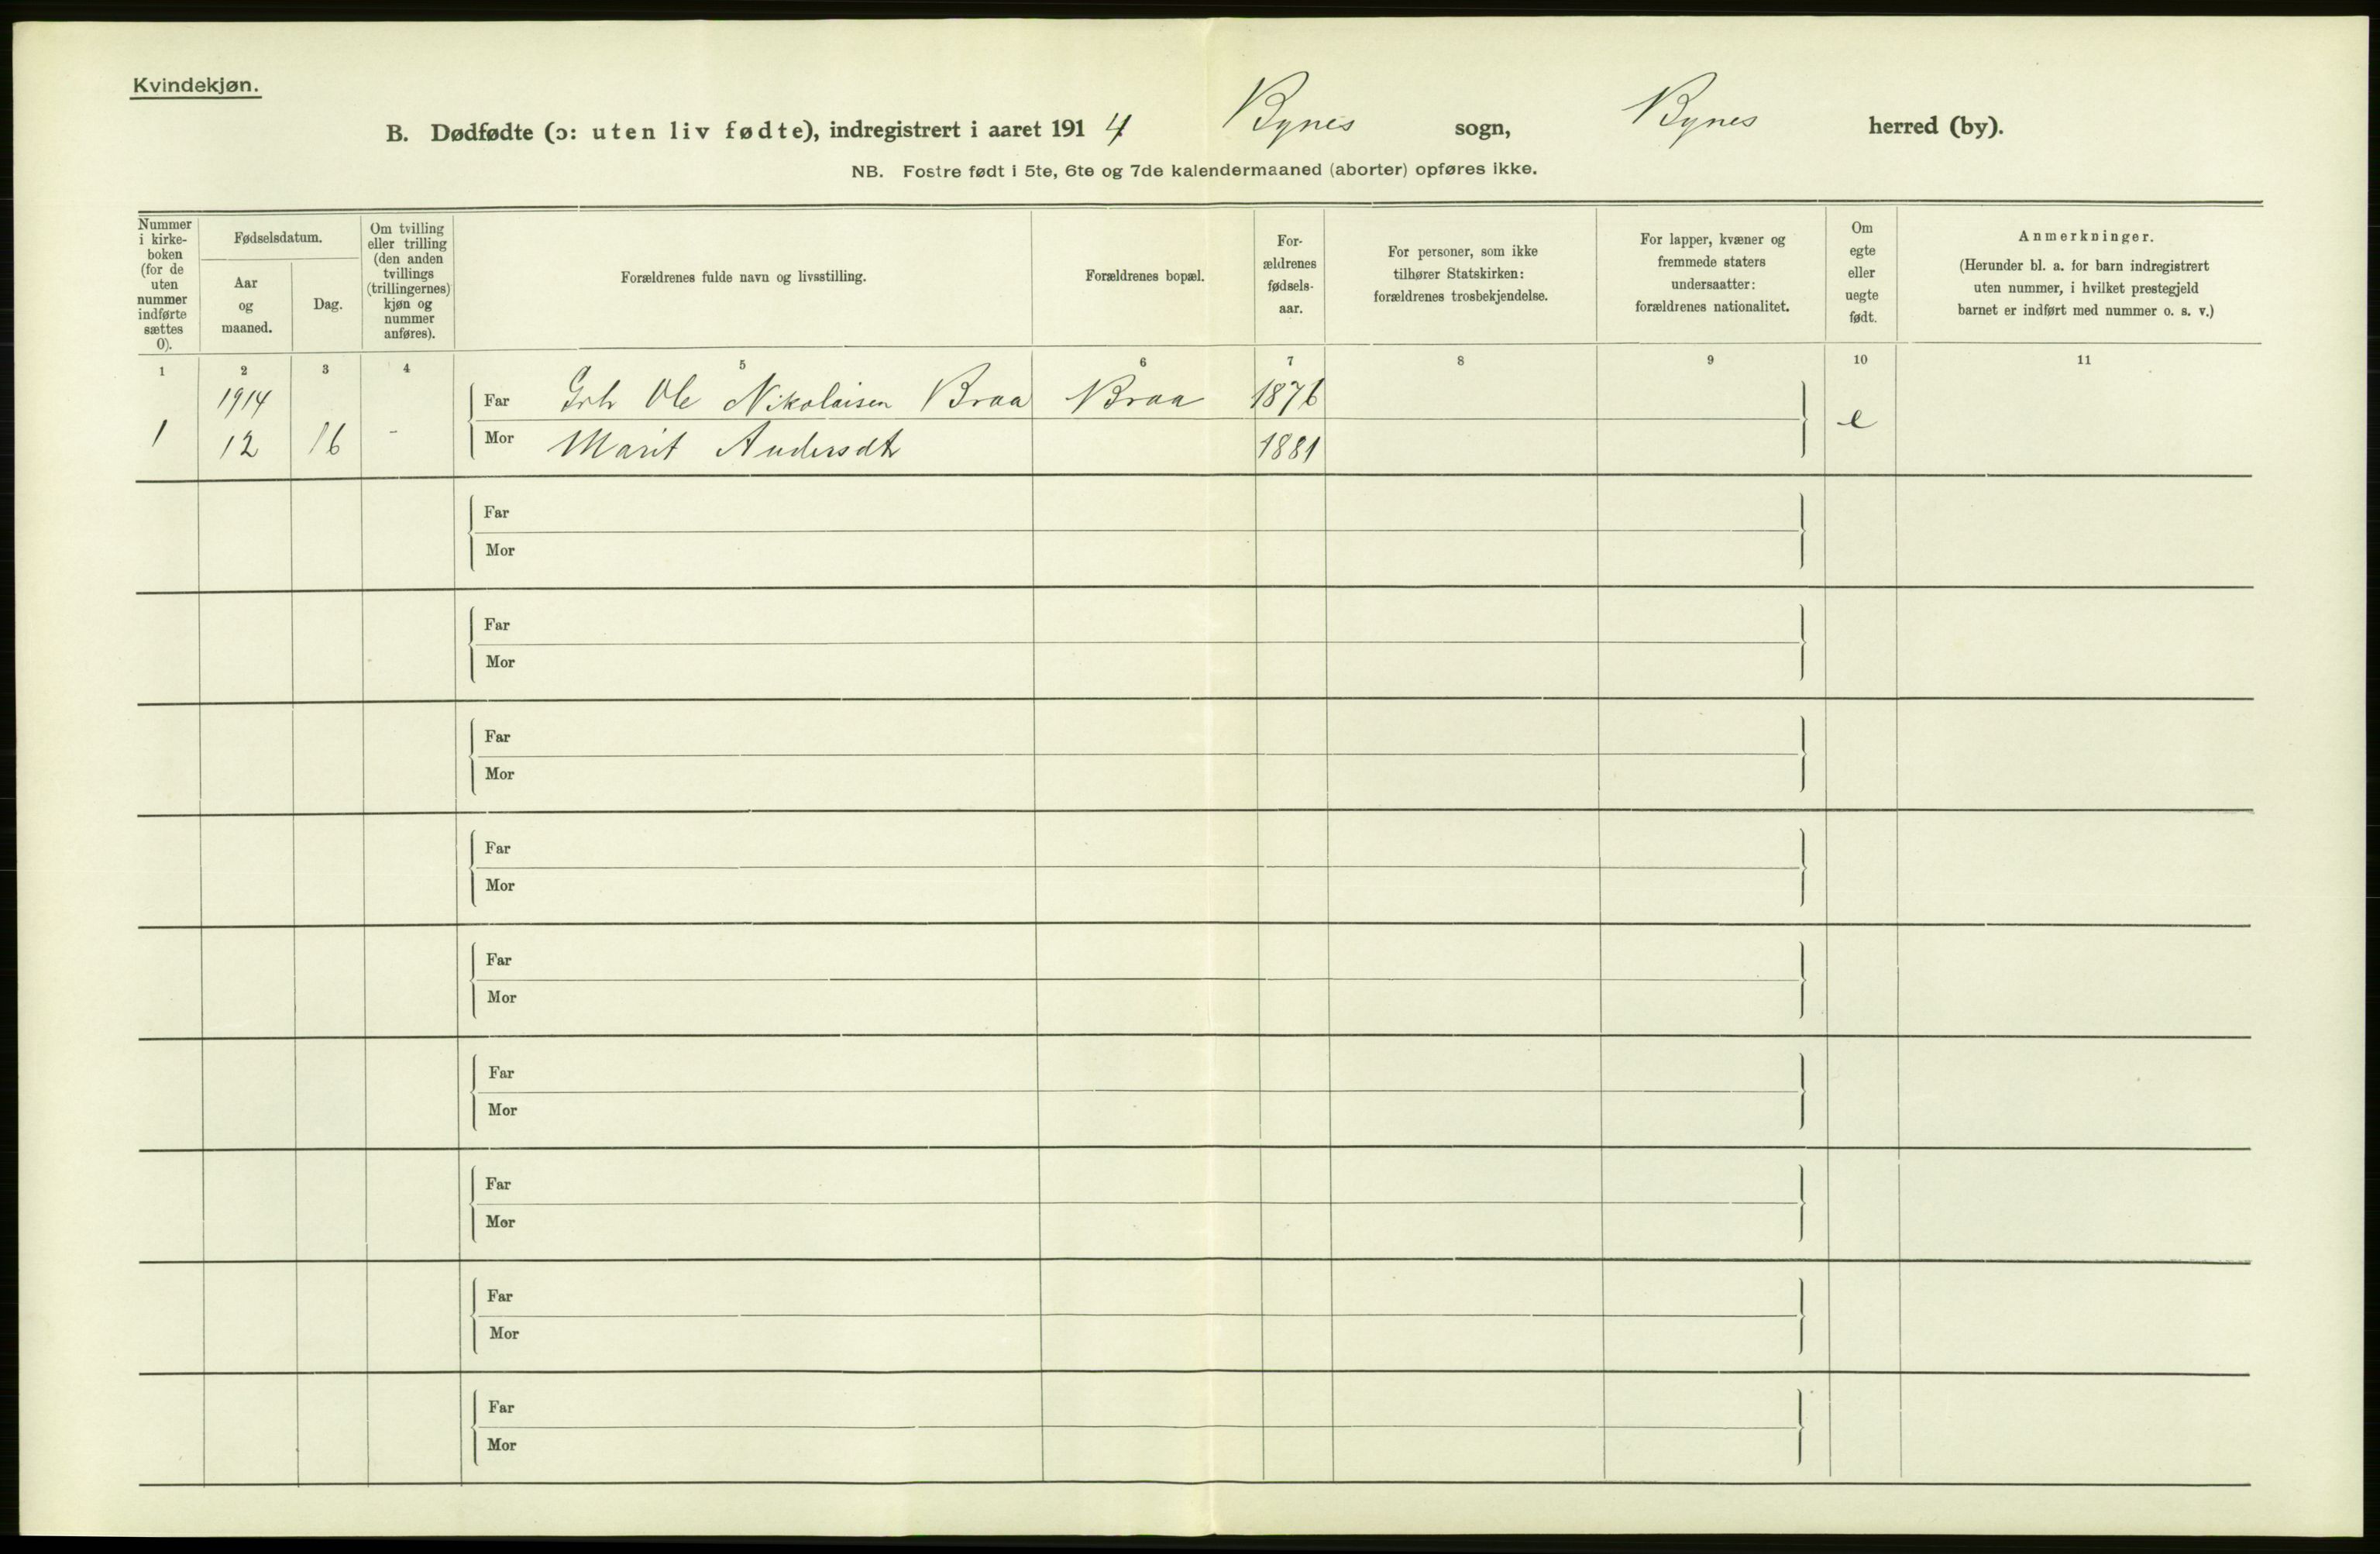 Kvindekjøn.
B. Dødfødte (ɔ: uten liv fødte), indregistrert i aaret 1914 Bynes sogn, Bynes herred (by).
NB. Fostre født i 5te, 6te og 7de kalendermaaned (aborter) opføres ikke.
Nummer i kirke-boken (for de uten nummer indførte sættes 0).
Fødselsdatum.
Aar og maaned.
Dag.
Om tvilling eller trilling (den anden tvillings (trillingernes) kjøn og nummer anføres).
Forældrenes fulde navn og livsstilling.
Forældrenes bopæl.
For-ældrenes fødsels-aar.
For personer, som ikke tilhører Statskirken: forældrenes trosbekjendelse.
For lapper, kvæner og fremmede staters undersaatter: forældrenes nationalitet.
Om egte eller uegte født.
Anmerkninger.
(Herunder bl. a. for barn indregistrert uten nummer, i hvilket prestegjeld barnet er indført med nummer o. s. v.)
1 2 3 4 5 6 7 8 9 10 11
1914 Far Ole Nikolaisen Braa Braa 1876
1 12 16 - Mor Marit Andersdt 1881 e
Far
Mor
Far
Mor
Far
Mor
Far
Mor
Far
Mor
Far
Mor
Far
Mor
Far
Mor
Far
Mor